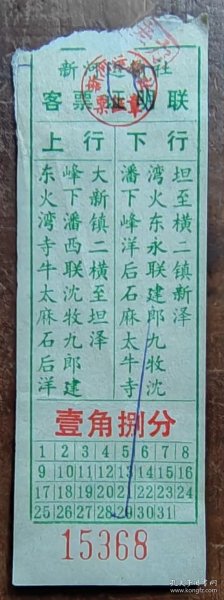 客票证明联
上行
下行
东火湾寺牛太麻石后洋
峰下潘西联沈牧九郎建
大新镇二横至坦泽
潘下峰洋后石麻太牛寺
湾火东永联建郎九牧沈
坦至横二镇新泽
壹角捌分
1 2 3 4 5 6 7 8
9 10 11 12 13 14 15 16
17 18 19 20 21 22 23 24
25 26 27 28 29 30 31
15368